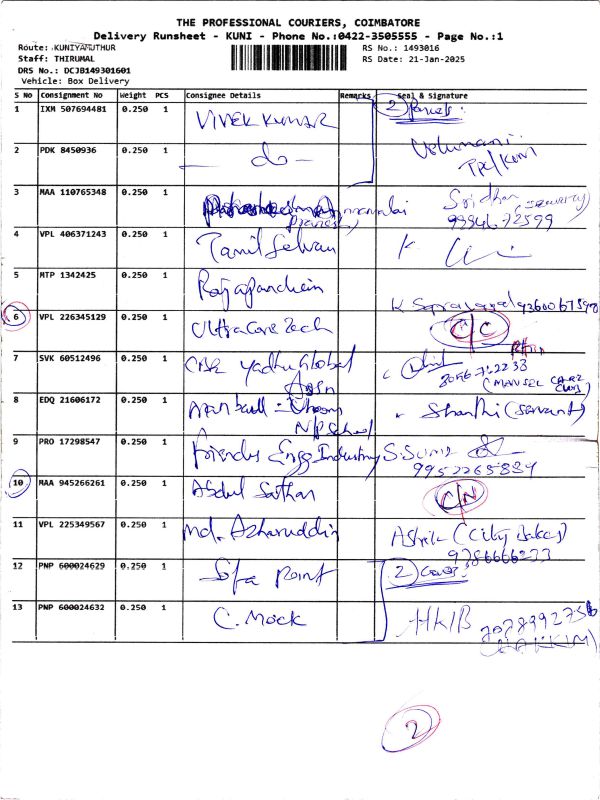 THE PROFESSIONAL COURIERS, COIMBATORE
Delivery Runsheet - KUNI - Phone No.:0422-3505555 - Page No.:1
Route: KUNIYAMUTHUR RS No.: 1493016
Staff: THIRUMAL RS Date: 21-Jan-2025
DRS No.: DCJB149301601
Vehicle: Box Delivery
S No Consignment No Weight PCS Consignee Details Remarks Seal & Signature
1 IXM 507694481 0.250 1 VIVEK KUMAR 2 Parcels
2 PDK 8450936 0.250 1 - do - Velumani
3 MAA 110765348 0.250 1 Annamalai Sridhar (security)
99946 72599
4 VPL 406371243 0.250 1 Tamil Selvan K
5 MTP 1342425 0.250 1 Rajapandian K
6 VPL 226345129 0.250 1 Ultra Care Tech C/C
7 SVK 60512496 0.250 1 CBR Yadhu Global
Assn
8 EDQ 21606172 0.250 1 Shanthi (servant)
N/P School
9 PRO 17298547 0.250 1 Friends Engg Industry
9952265839
10 MAA 945266261 0.250 1 Abdul Sathar C/N
11 VPL 225349567 0.250 1 Md. Azharuddin (City Bakes)
9786666233
12 PNP 600024629 0.250 1 Sofa Point 2 Cover
13 PNP 600024632 0.250 1 C. Mock
(HAKKIM)
2